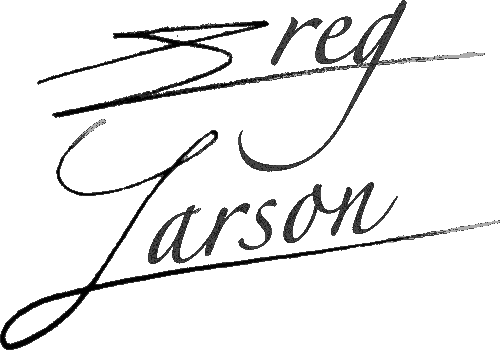 Greg
Larson